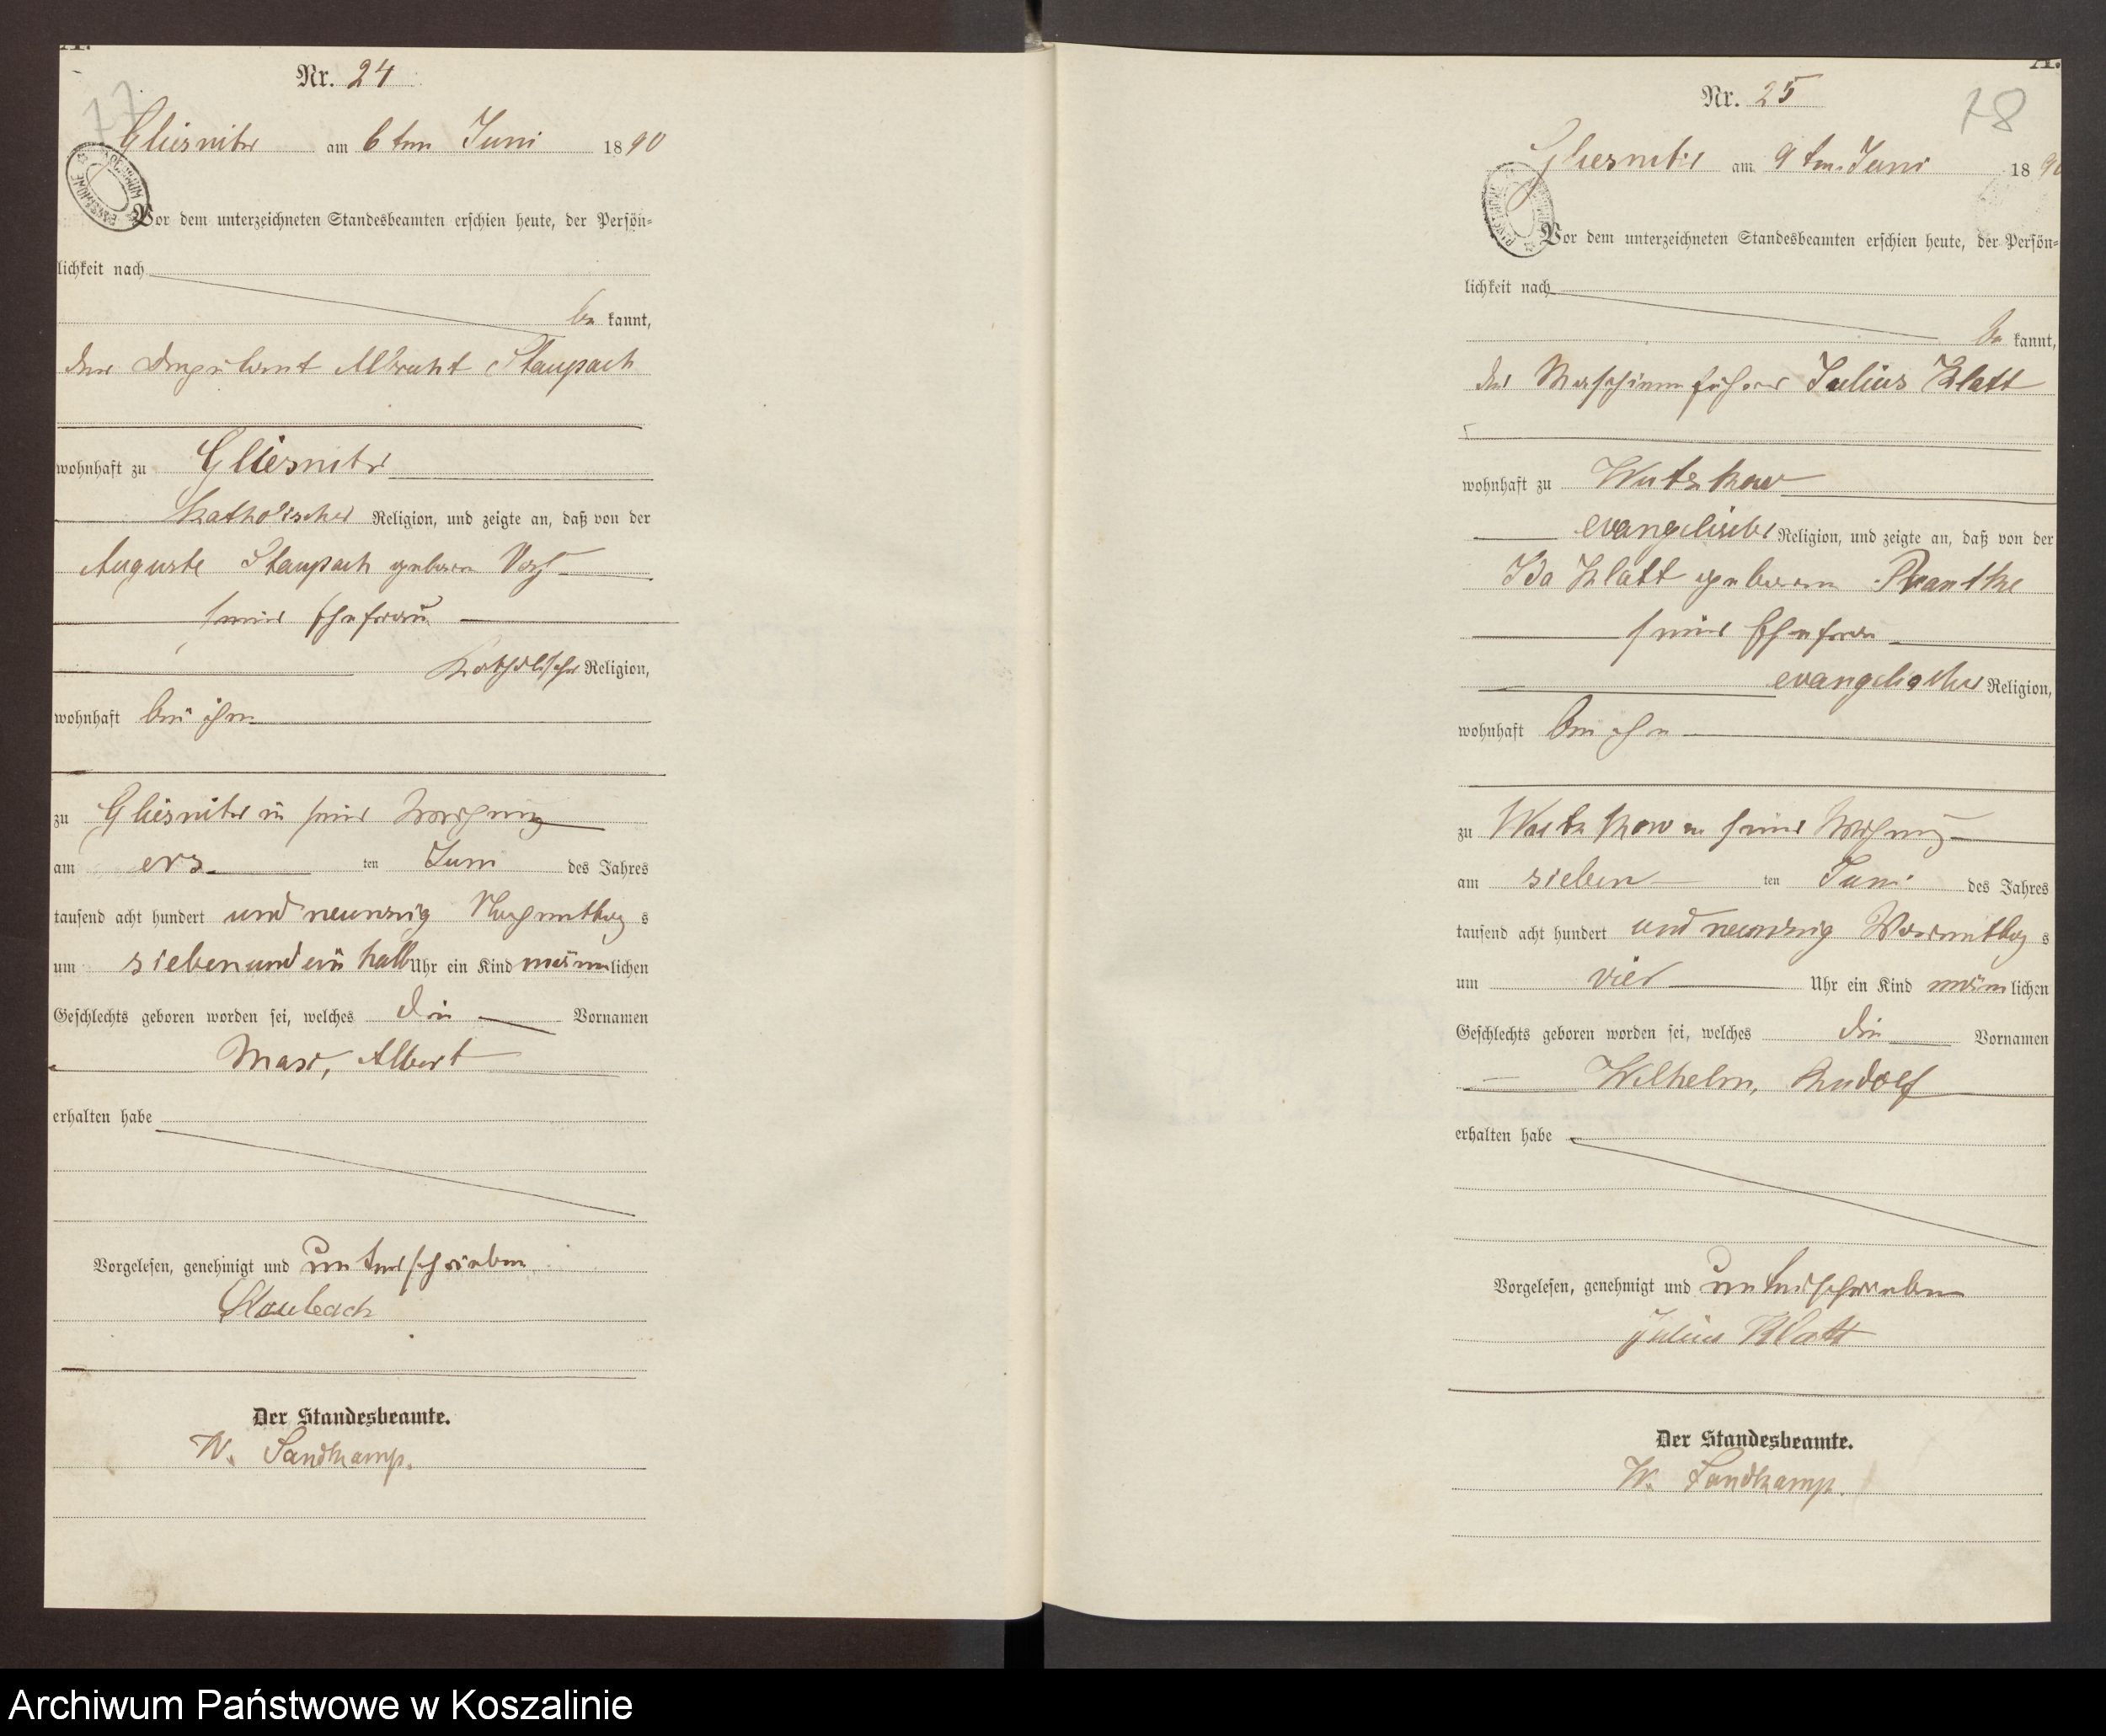 Nr. 24
77
Gliesnitz am 6ten Juni 1890
Vor dem unterzeichneten Standesbeamten erschien heute, der Persön-
lichkeit nach
be kannt,
der Albrecht Staupach
wohnhaft zu Gliesnitz
katholischer Religion, und zeigte an, daß von der
Auguste Staupach geboren
seiner Ehefrau
katholischer Religion,
wohnhaft bei ihm
zu Gliesnitz in seiner Wohnung
am ers ten Juni des Jahres
tausend acht hundert und neunzig Nachmittag s
um sieben und ein halb Uhr ein Kind männlichen
Geschlechts geboren worden sei, welches die Vornamen
Max, Albert
erhalten habe
Vorgelesen, genehmigt und unterschrieben
Staubach
Der Standesbeamte.
W. Sandkamp.
Nr. 25
78
Gliesnitz am 9ten Juni 1890
Vor dem unterzeichneten Standesbeamten erschien heute, der Persön-
lichkeit nach
be kannt,
der Maschinenführer Julius Klatt
wohnhaft zu Wutzkow
evangelischer Religion, und zeigte an, daß von der
Ida Klatt geborene Pranthe
seiner Ehefrau
evangelischer Religion,
wohnhaft bei ihm
zu Wutzkow in seiner Wohnung
am sieben ten Juni des Jahres
tausend acht hundert und neunzig Vormittag s
um vier Uhr ein Kind männlichen
Geschlechts geboren worden sei, welches die Vornamen
Wilhelm, Rudolf
erhalten habe
Vorgelesen, genehmigt und unterschrieben
Julius Klatt
Der Standesbeamte.
W. Sandkamp.
Archiwum Państwowe w Koszalinie